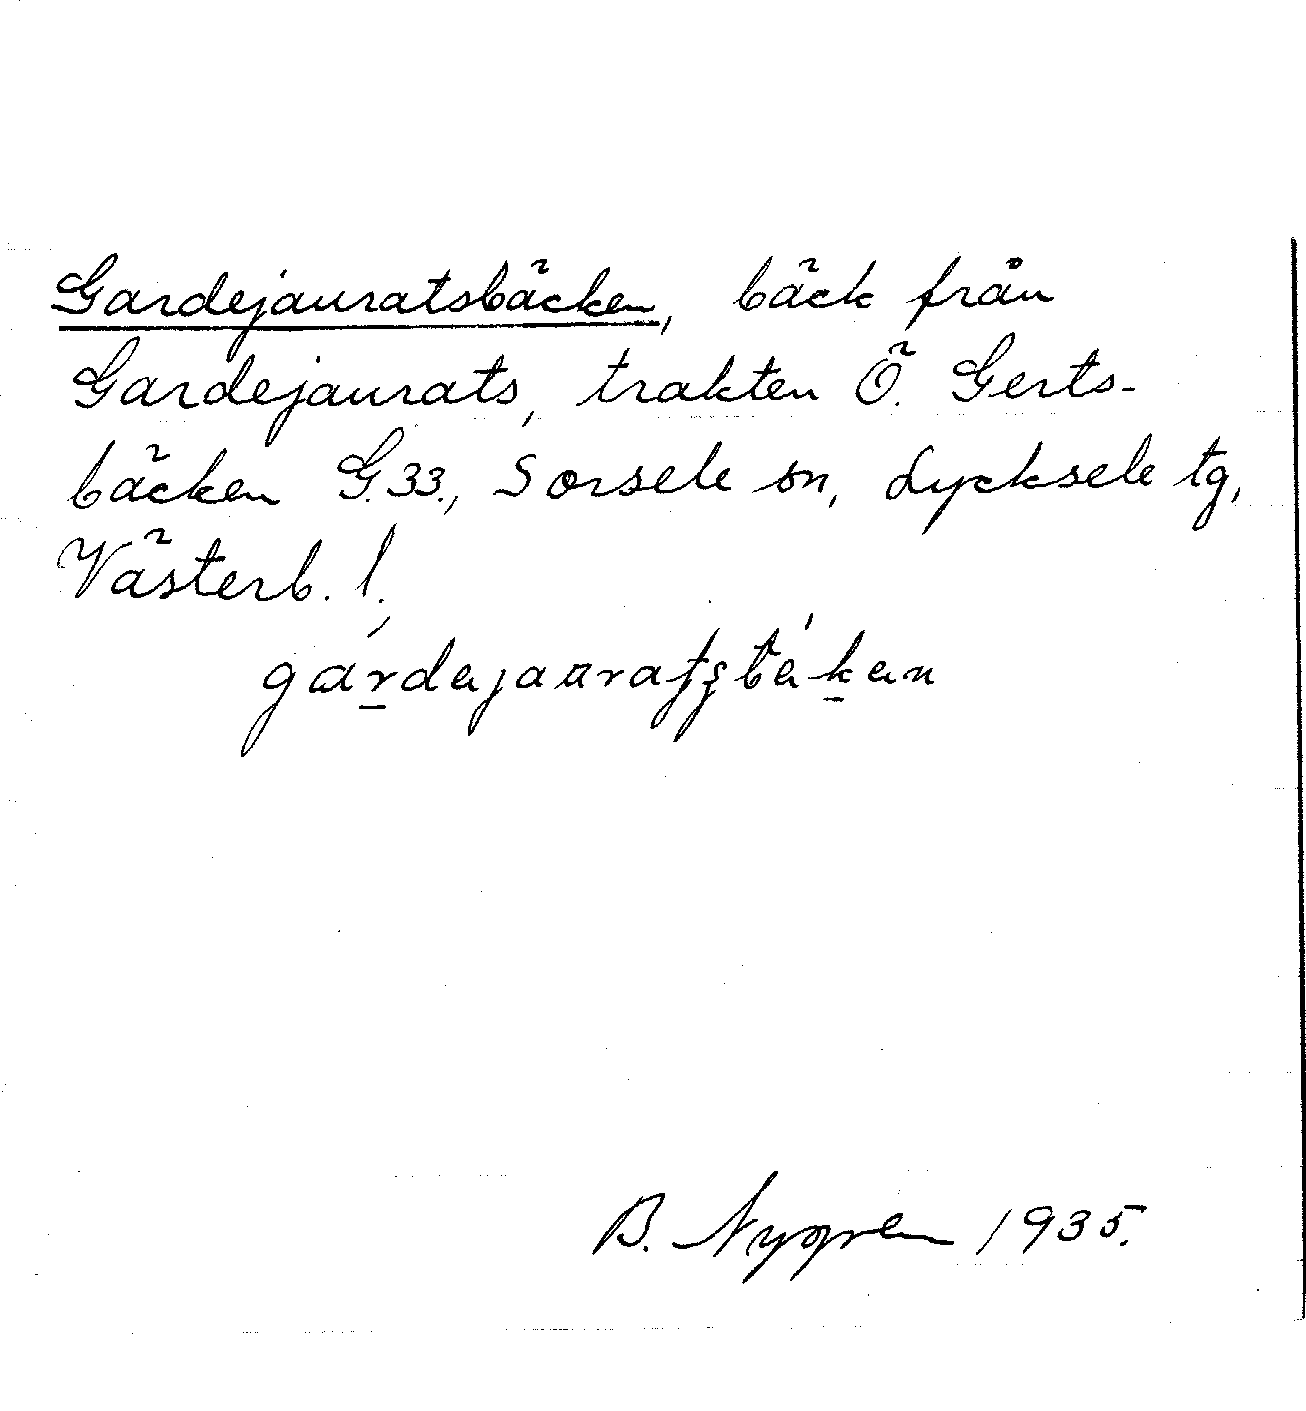 Gardejauratsbäcken, bäck från
Gardejaurats, trakten Ö. Gerts-
bäcken G.33., Sorsele sn, Lycksele tg,
Västerb. l.
B. Nygren 1935.